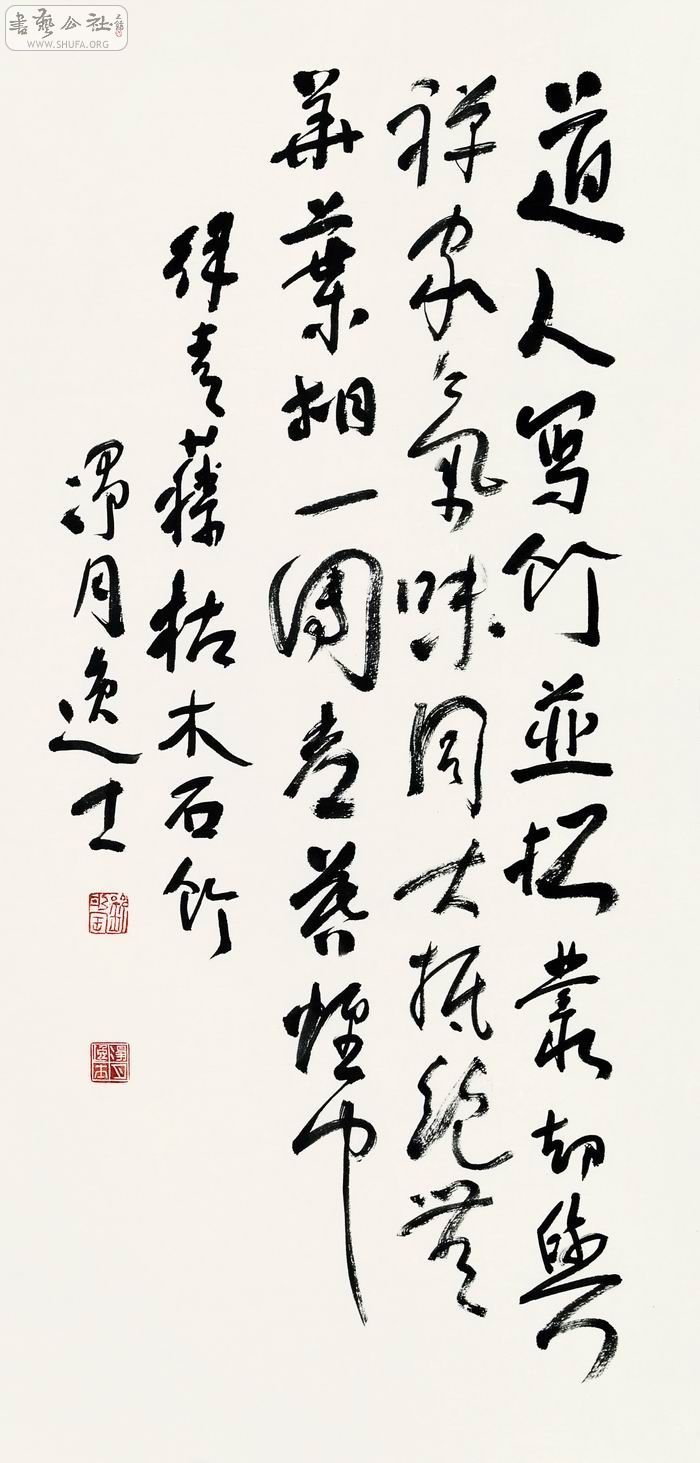 書藝公社
WWW.SHUFA.ORG
道人寫竹並枯叢却與
禅家氣味同大抵絕無
華葉相一團煙中
徐青藤枯木石竹
月逸士